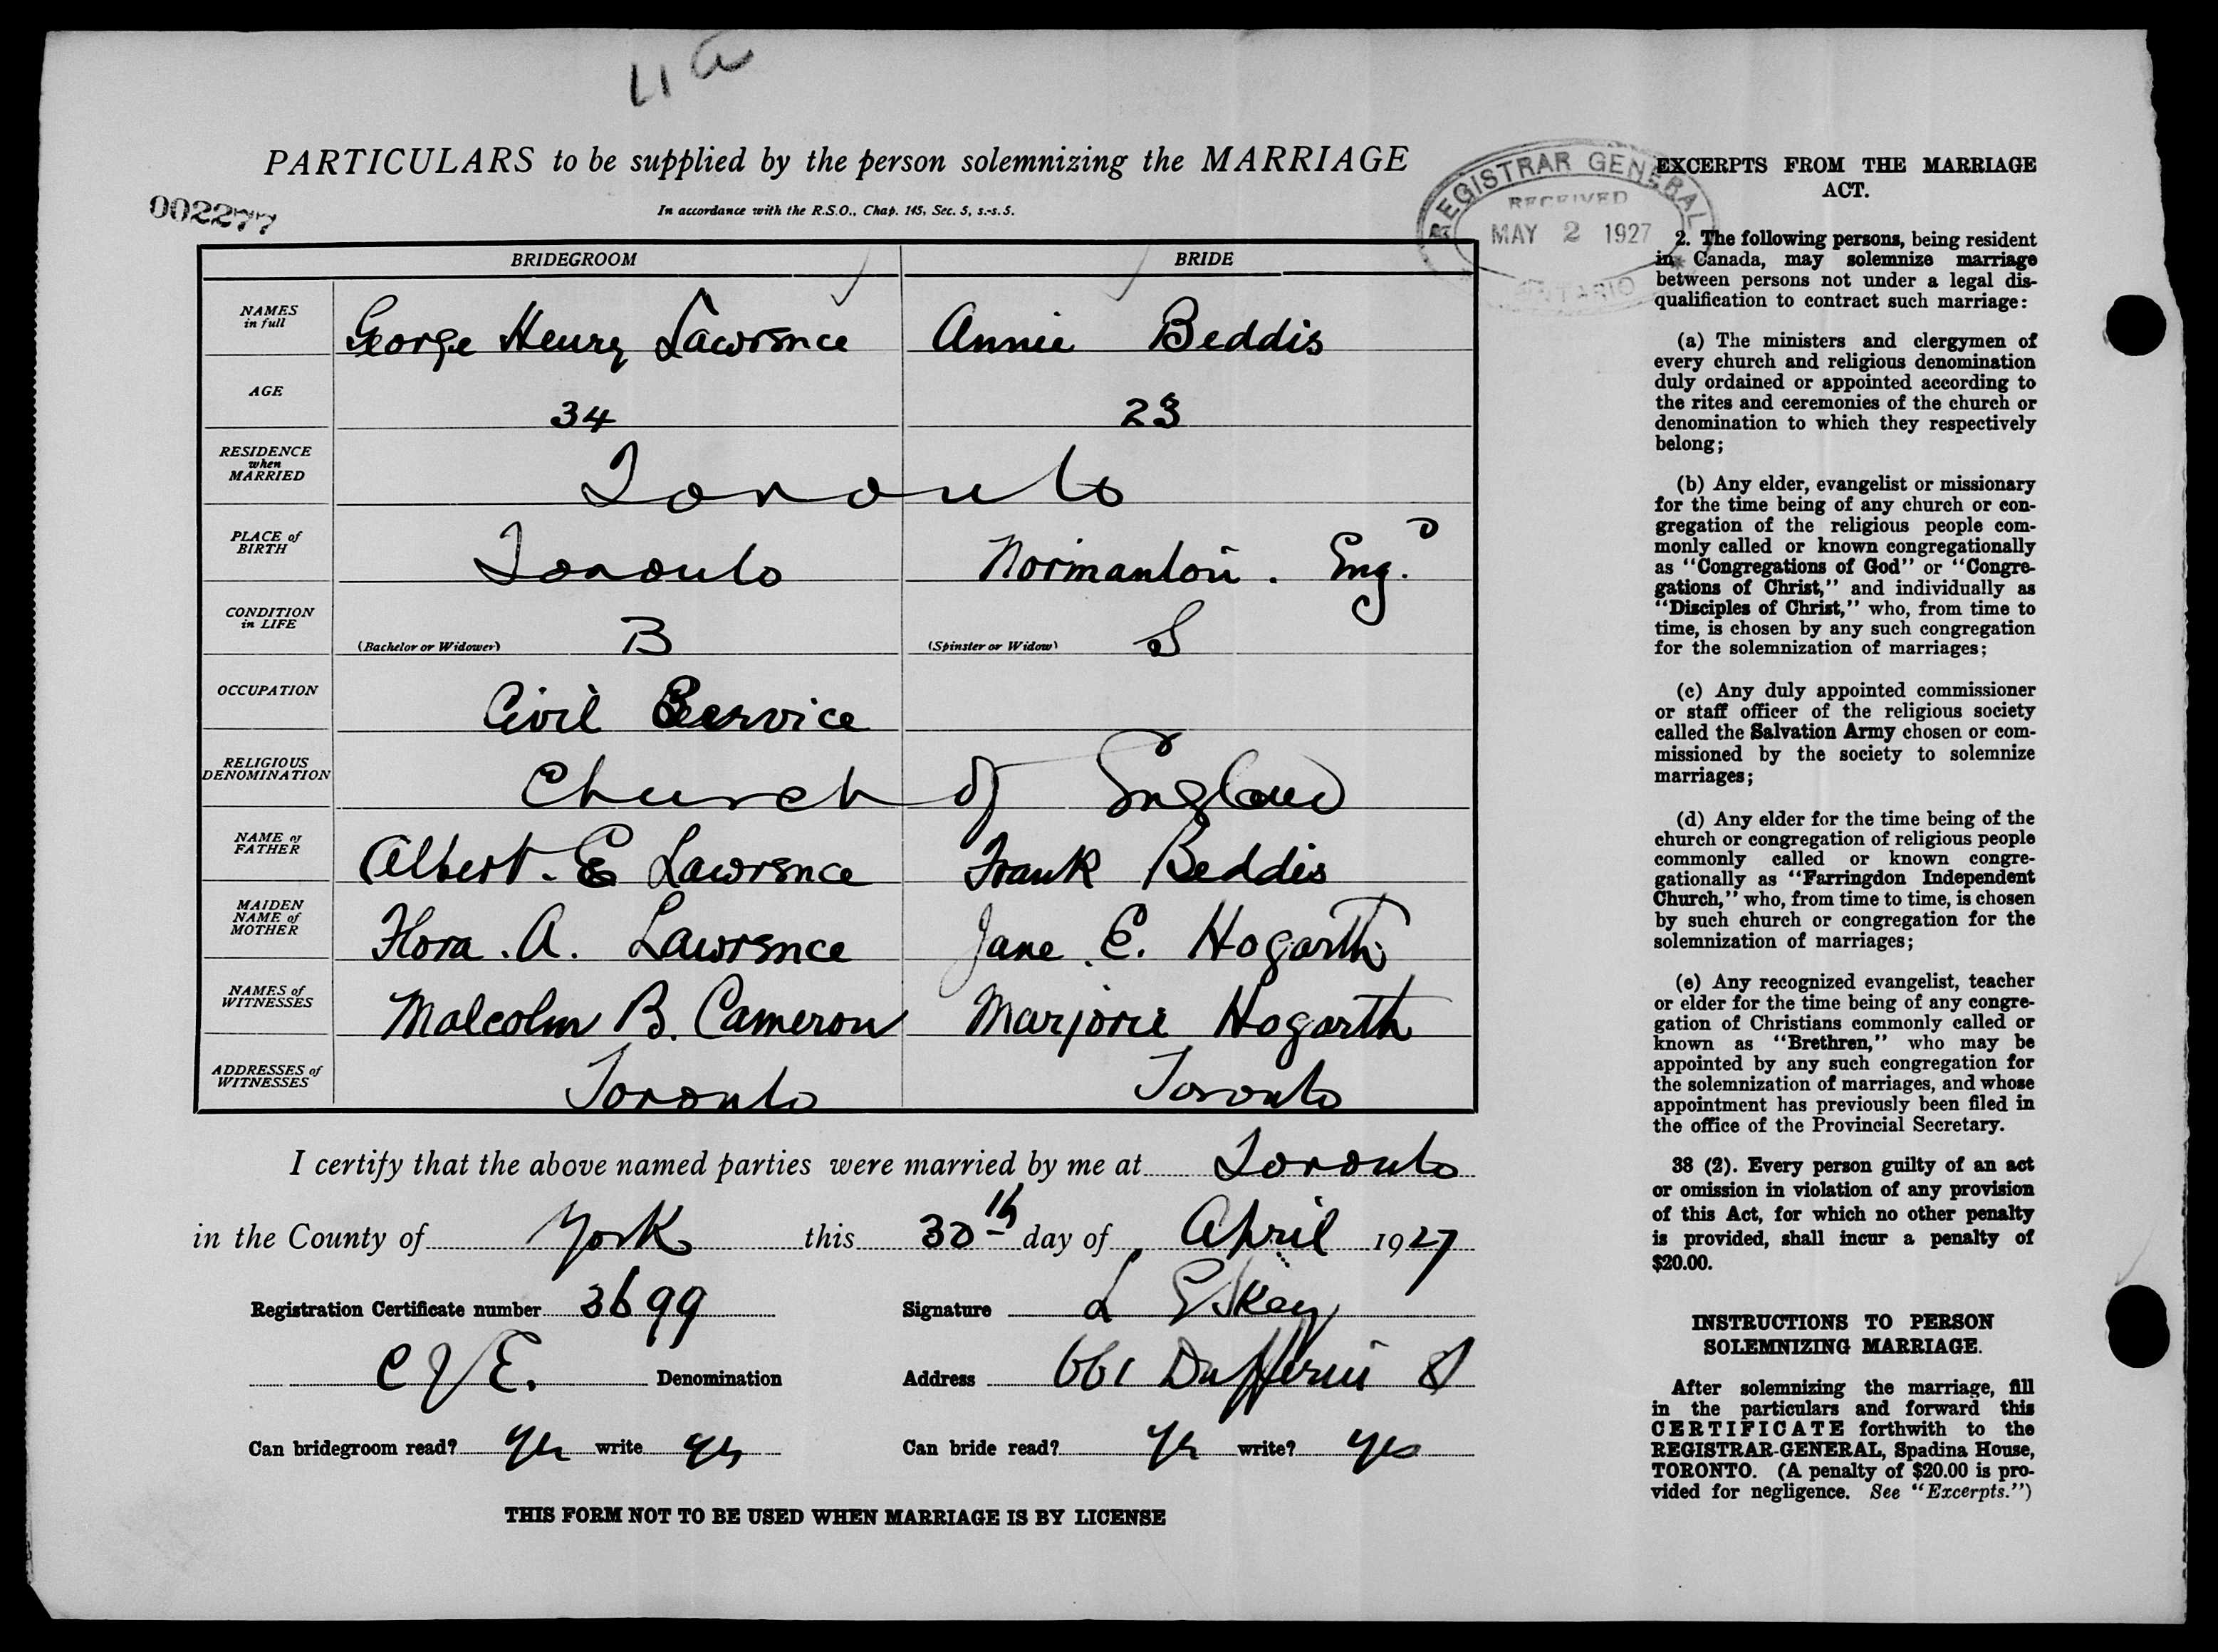 11 a
PARTICULARS to be supplied by the person solemnizing the MARRIAGE
In accordance with the R.S.O., Chap. 145, Sec. 5, s.-s. 5.
002277
REGISTRAR GENERAL
RECEIVED
MAY 2 1927
ONTARIO
BRIDEGROOM BRIDE
NAMES in full George Henry Lawrence Annie Beddis
AGE 34 23
RESIDENCE when MARRIED Toronto
PLACE of BIRTH Toronto Normanton. Eng.
CONDITION in LIFE (Bachelor or Widower) B (Spinster or Widow) S
OCCUPATION Civil Service
RELIGIOUS DENOMINATION Church of England
NAME of FATHER Albert. E Lawrence Frank Beddis
MAIDEN NAME of MOTHER Flora. A. Lawrence Jane. E. Hogarth
NAMES of WITNESSES Malcolm B. Cameron Marjorie Hogarth
ADDRESSES of WITNESSES Toronto Toronto
I certify that the above named parties were married by me at Toronto
in the County of York this 30th day of April 1927
Registration Certificate number 3699 Signature L E Skey
C of E. Denomination Address 661 Dufferin St
Can bridegroom read? yes write yes Can bride read? yes write? yes
THIS FORM NOT TO BE USED WHEN MARRIAGE IS BY LICENSE
EXCERPTS FROM THE MARRIAGE
ACT.
2. The following persons, being resident
in Canada, may solemnize marriage
between persons not under a legal dis-
qualification to contract such marriage:
(a) The ministers and clergymen of
every church and religious denomination
duly ordained or appointed according to
the rites and ceremonies of the church or
denomination to which they respectively
belong;
(b) Any elder, evangelist or missionary
for the time being of any church or con-
gregation of the religious people com-
monly called or known congregationally
as "Congregations of God" or "Congre-
gations of Christ," and individually as
"Disciples of Christ," who, from time to
time, is chosen by any such congregation
for the solemnization of marriages;
(c) Any duly appointed commissioner
or staff officer of the religious society
called the Salvation Army chosen or com-
missioned by the society to solemnize
marriages;
(d) Any elder for the time being of the
church or congregation of religious people
commonly called or known congre-
gationally as "Farringdon Independent
Church," who, from time to time, is chosen
by such church or congregation for the
solemnization of marriages;
(e) Any recognized evangelist, teacher
or elder for the time being of any congre-
gation of Christians commonly called or
known as "Brethren," who may be
appointed by any such congregation for
the solemnization of marriages, and whose
appointment has previously been filed in
the office of the Provincial Secretary.
38 (2). Every person guilty of an act
or omission in violation of any provision
of this Act, for which no other penalty
is provided, shall incur a penalty of
$20.00.
INSTRUCTIONS TO PERSON
SOLEMNIZING MARRIAGE.
After solemnizing the marriage, fill
in the particulars and forward this
CERTIFICATE forthwith to the
REGISTRAR-GENERAL, Spadina House,
TORONTO. (A penalty of $20.00 is pro-
vided for negligence. See "Excerpts.")